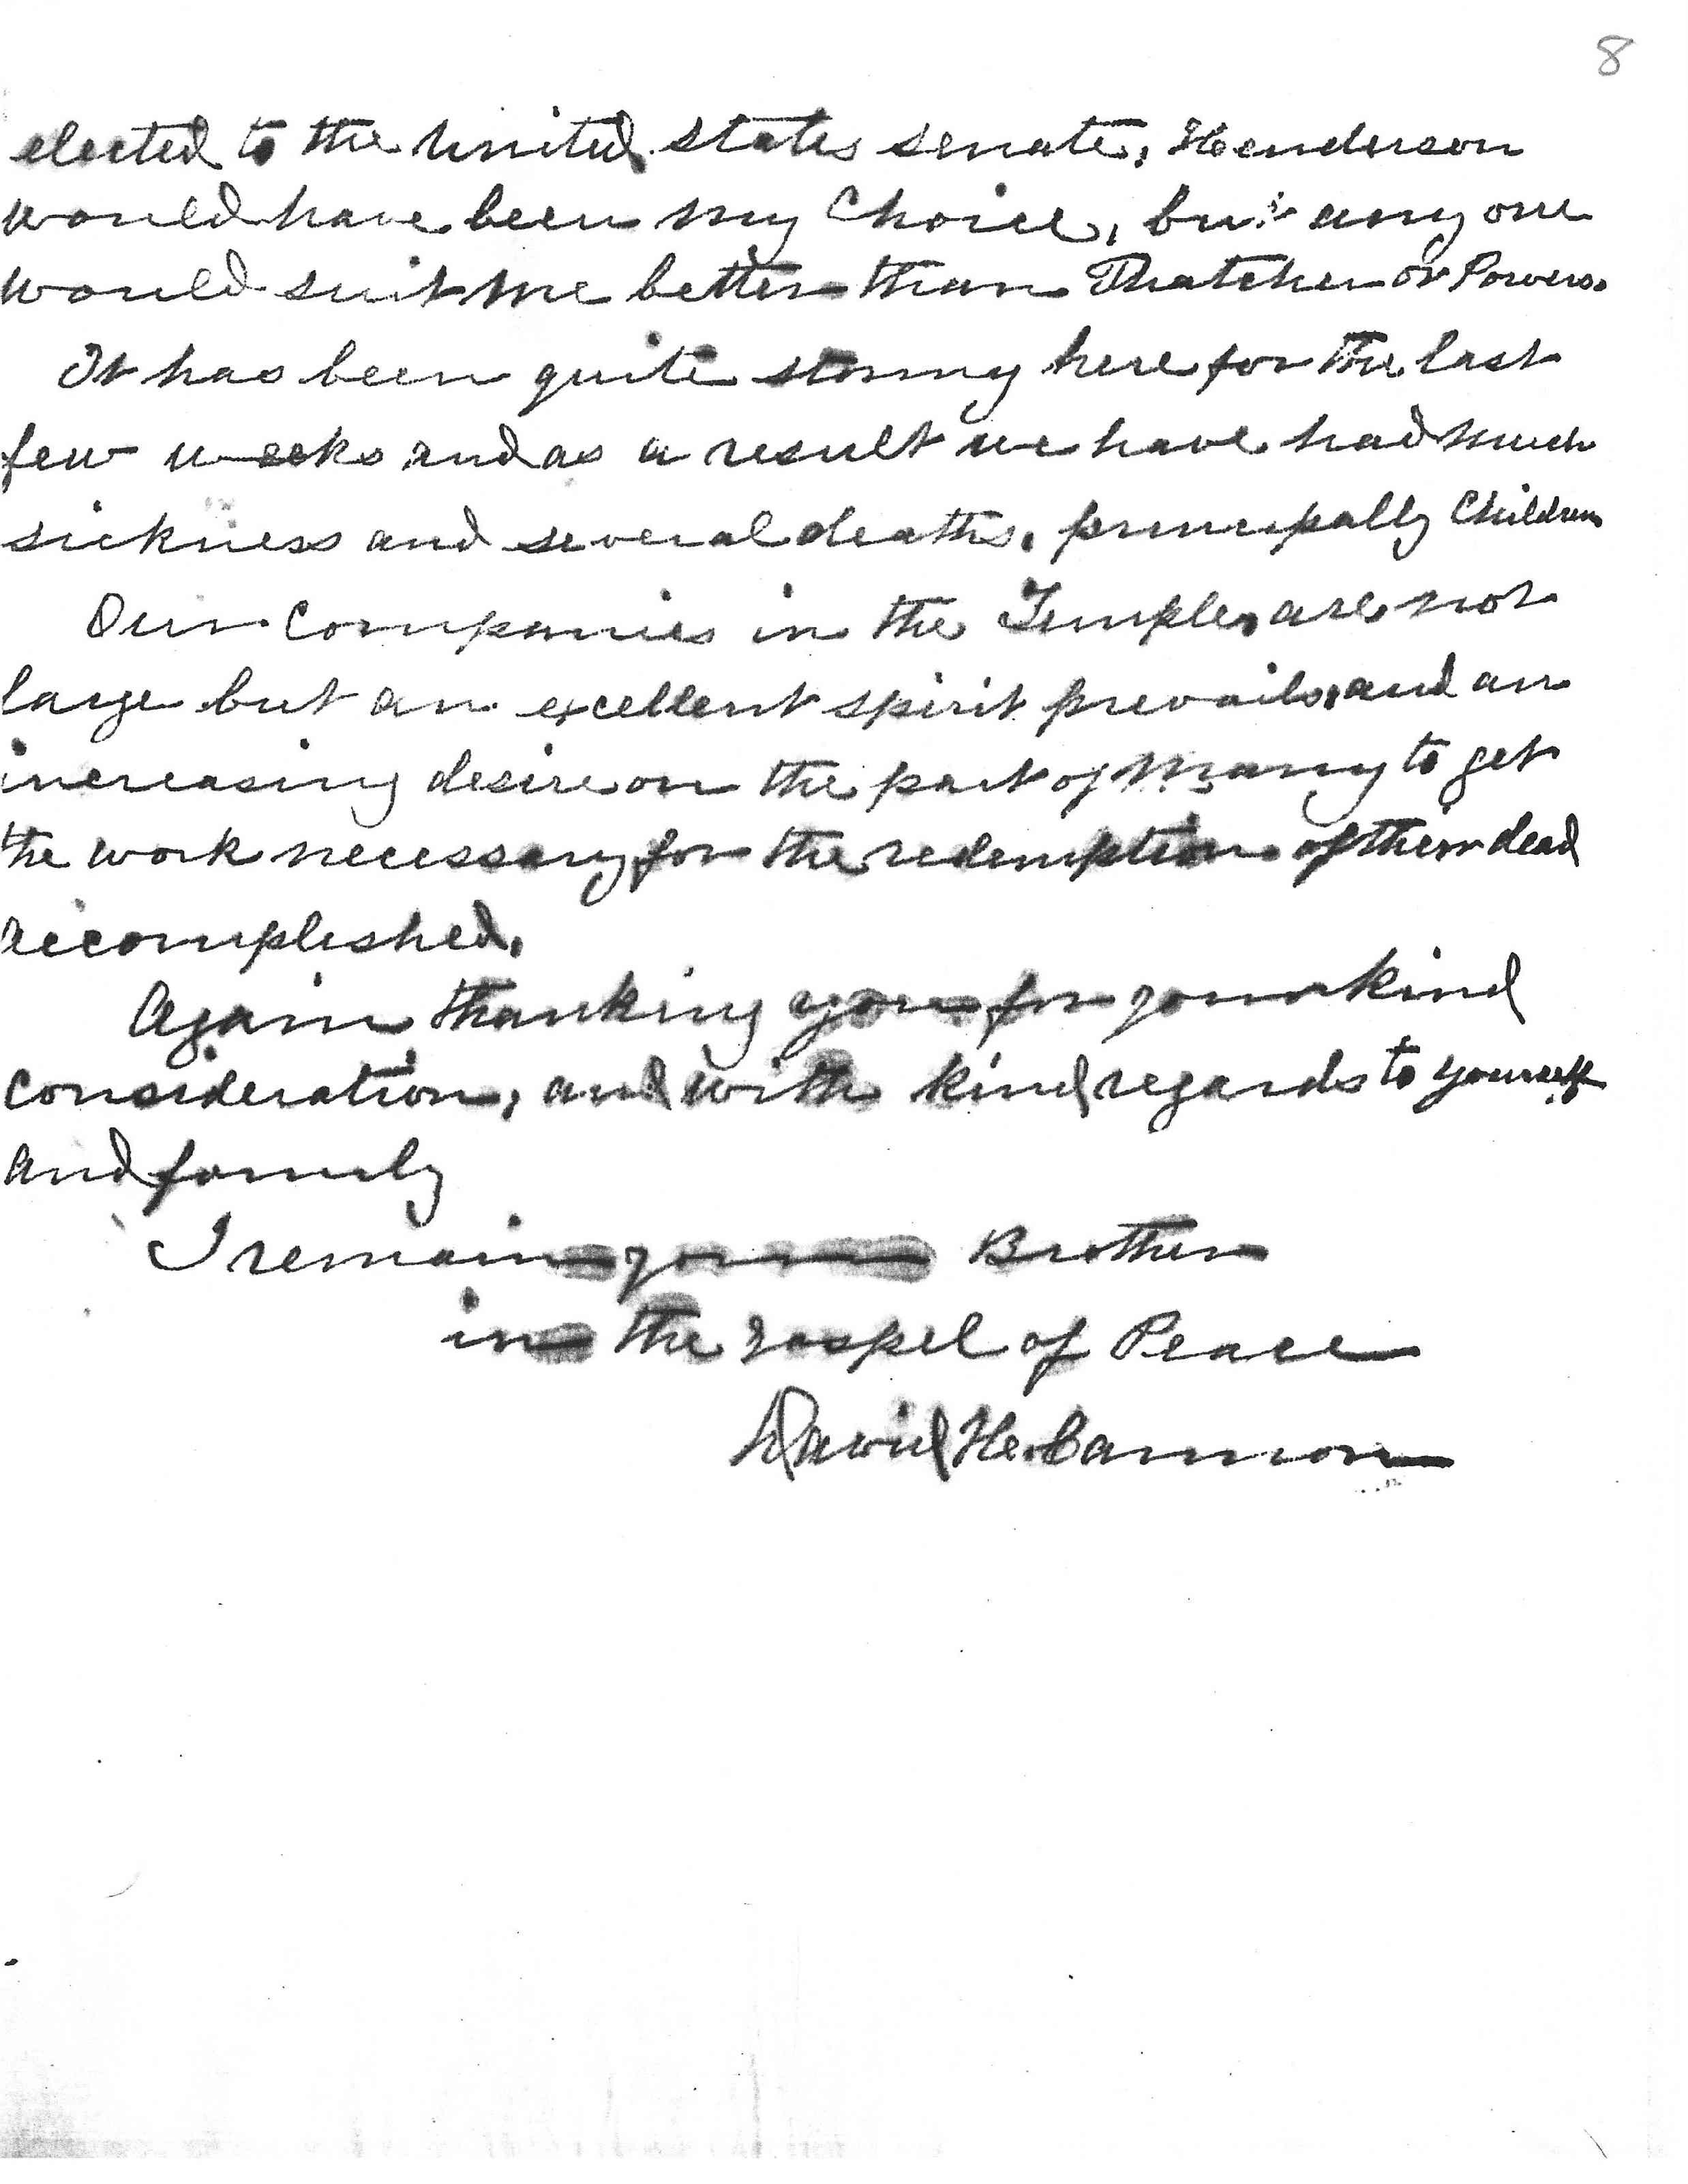 8
elected to the United states senate, Henderson
would have been my Choice, but any one
would suit me better than Thatcher or Powers.
It has been quite stormy here for the last
few weeks and as a result we have had much
sickness and several deaths, principally Children
Our Companies in the Temple, are not
large but an excellent spirit prevails, and an
increasing desire on the part of Many to get
the work necessary for the redemption of their dead
accomplished.
Again thanking you for your kind
consideration, and with kind regards to yourself
and family
I remain your Brother
in the gospel of Peace
David H. Cannon